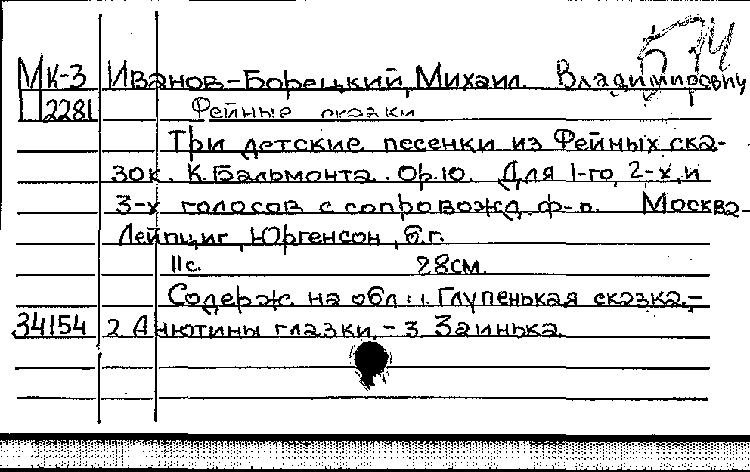 МК-3 Иванов-Борецкий, Михаил Владимирович
П 2281 Фейные сказки
Три детские песенки из Фейных ска-
зок К. Бальмонта. Ор.10. Для 1-го, 2-х, и
3-х голосов с сопровожд. ф-п. Москва
Лейпциг, Юргенсон, б.г.
11с. 28см.
Содерж. на обл: 1. Глупенькая сказка.-
34154 2 Анютины глазки. - 3 Заинька.